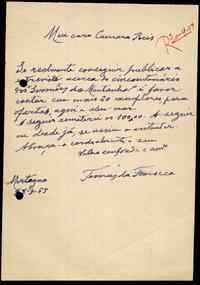 Meu caro Camara Reis
Se realmente conseguir publicar a
entrevista acerca do cincoentenário
dos "Sermões da Montanha" é favor
contar com mais 50 exemplares para
ofertas, agora a meu
A seguir remeterei os 100,00. A seguir
ou desde já, se assim o entender.
Abraça-o cordealmente o seu
velho
Mortagua
Tomás da Fonseca